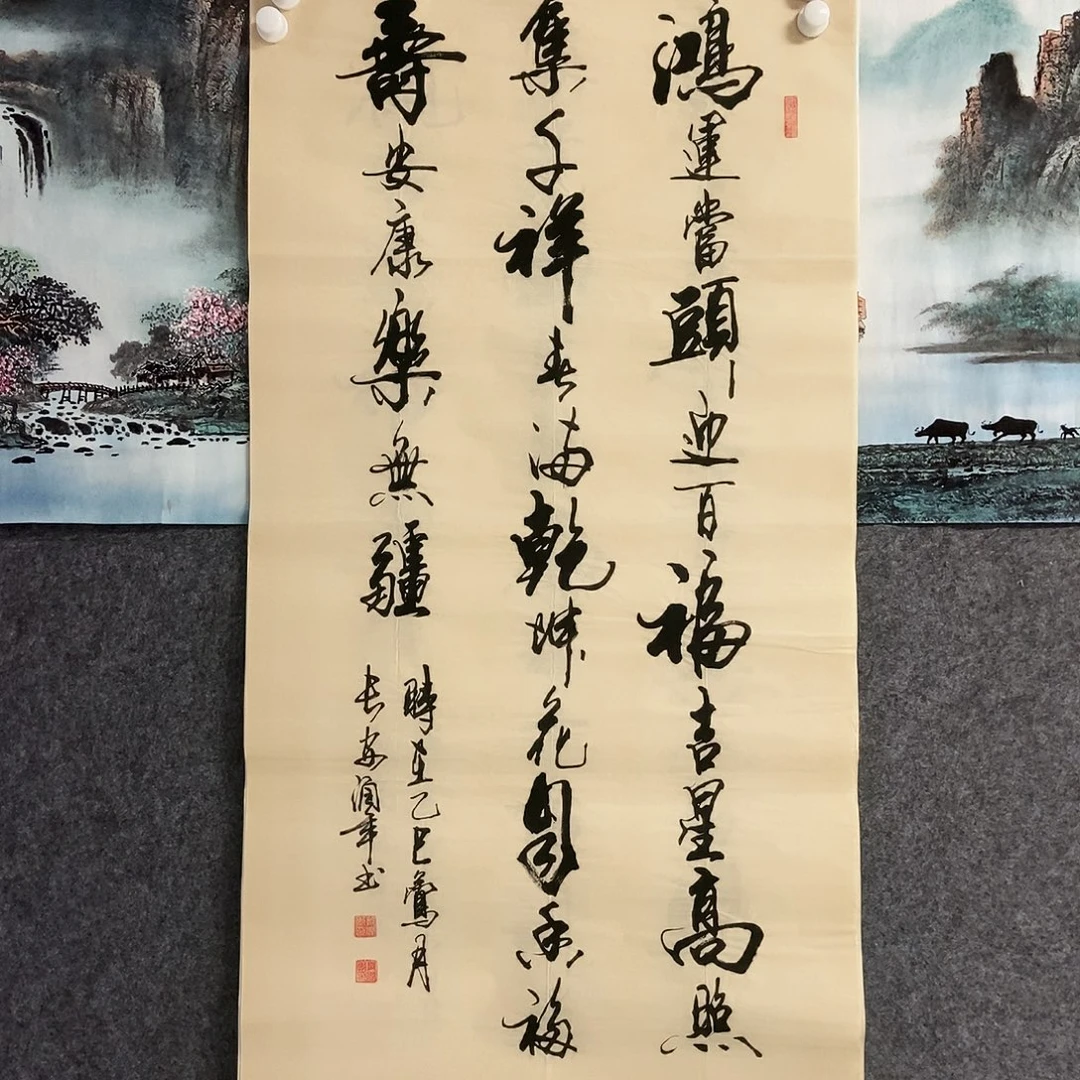 鴻運當頭迎百福吉星高照
集千祥春滿乾坤花自香福
壽安康樂無疆
時在乙巳鶯月
長安潤年书